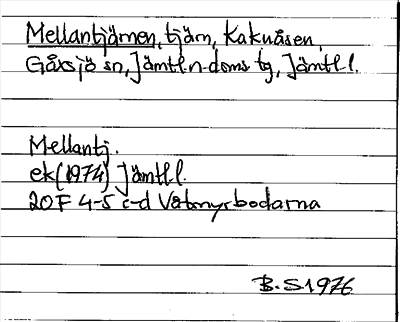 Mellantjärnen, tjärn, Kaknåsen,
Gåxsjö sn, Jämtl. n. doms tg, Jämtl. l.
Mellantj.
ek (1974) Jämtl. l.
20F 4-5 c-d Våtmyrbodarna
B. S. 1976